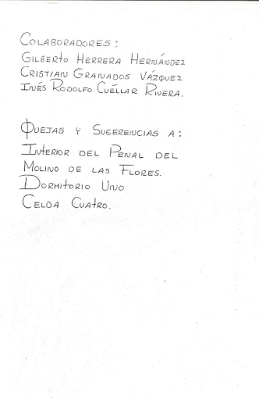 COLABORADORES:
GILBERTO HERRERA HERNÁNDEZ
CRISTIAN GRANADOS VÁZQUEZ
INÉS RODOLFO CUÉLLAR RIVERA.
QUEJAS Y SUGERENCIAS A:
INTERIOR DEL PENAL DEL
MOLINO DE LAS FLORES.
DORMITORIO UNO
CELDA CUATRO.